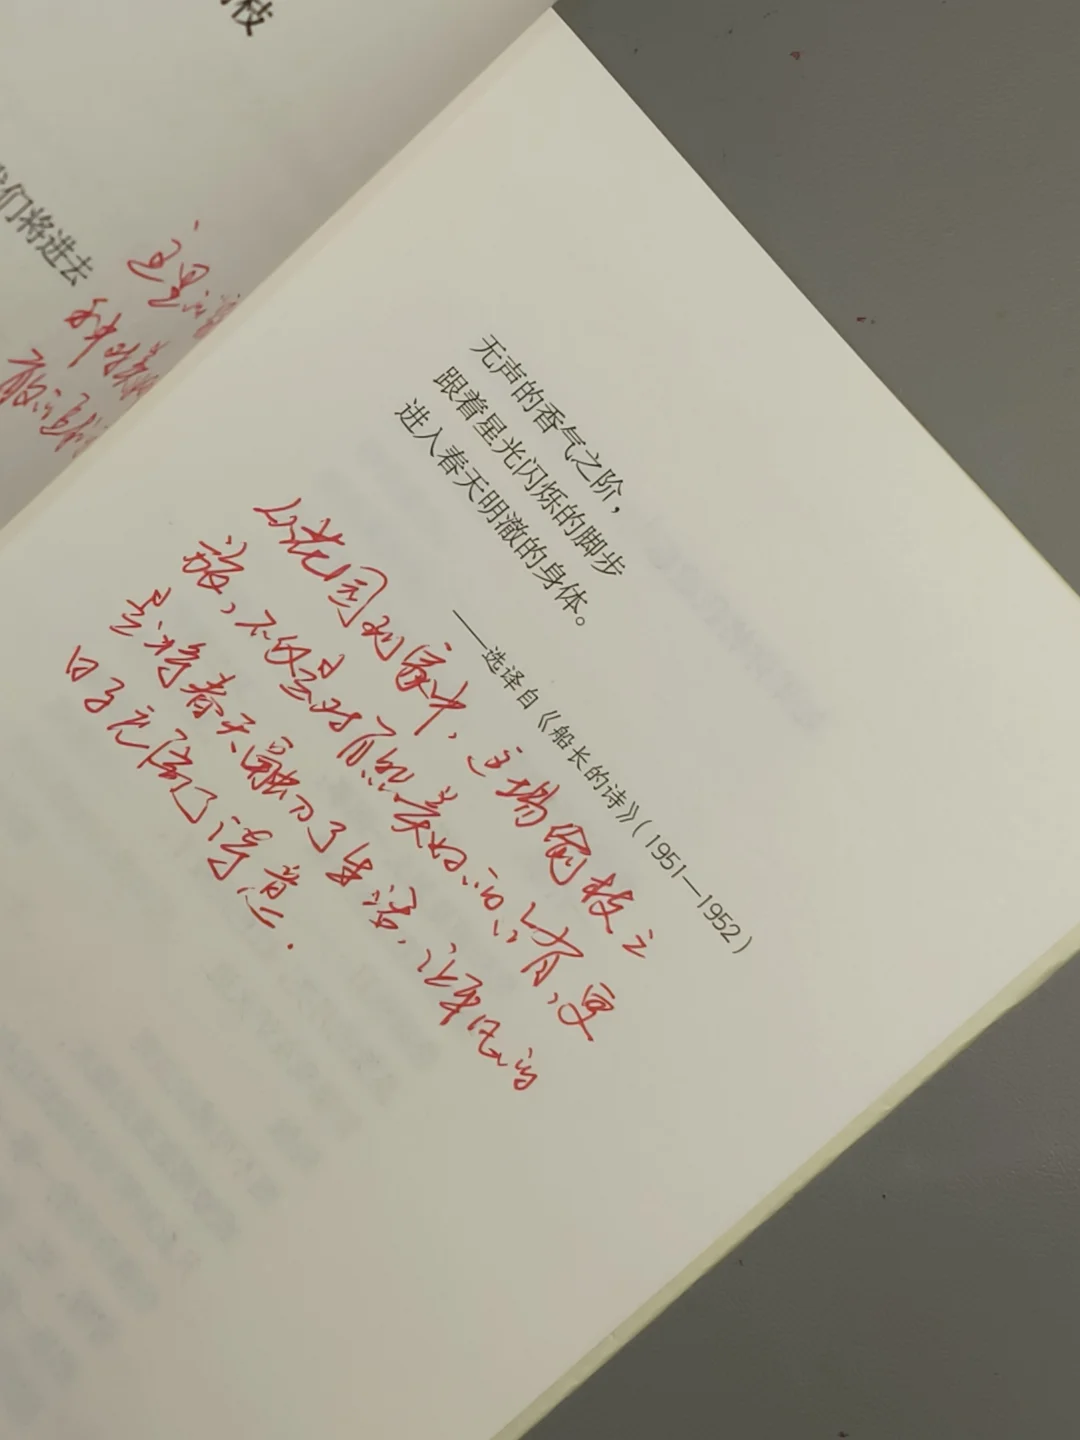 枝
我们将进去
这是
种
无声的香气之阶，
跟着星光闪烁的脚步
进入春天明澈的身体。
——选译自《船长的诗》（1951—1952）
从花园到家中，这场偷枝之
旅，不仅是对自然美好的占有，更
是将春天融入了生活，让平凡的
日子充满了诗意.